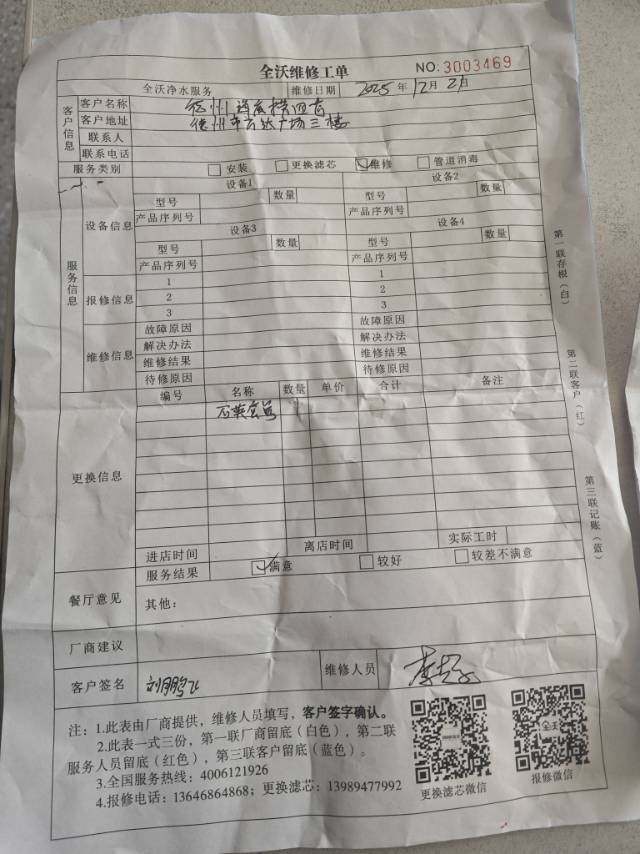 全沃维修工单
NO.3003469
全沃净水服务 维修日期 2025年12月21日
客户信息
客户名称 德州
客户地址 德州市 达广场三楼
联系人
联系电话
服务类别 安装 更换滤芯 维修 管道消毒
服务信息
设备信息
设备1 设备2
型号 数量 型号 数量
产品序列号 产品序列号
设备3 设备4
型号 数量 型号 数量
产品序列号 产品序列号
报修信息
1 1
2 2
3 3
维修信息
故障原因 故障原因
解决办法 解决办法
维修结果 维修结果
待修原因 待修原因
更换信息
编号 名称 数量 单价 合计 备注
1
进店时间 离店时间 实际工时
服务结果 满意 较好 较差不满意
餐厅意见 其他:
厂商建议
客户签名 刘鹏飞 维修人员
注：1.此表由厂商提供，维修人员填写，客户签字确认。
2.此表一式三份，第一联厂商留底（白色），第二联
服务人员留底（红色），第三联客户留底（蓝色）。
3.全国服务热线：4006121926
4.报修电话：13646864868；更换滤芯：13989477992
更换滤芯微信 报修微信
全沃
第一联存根（白）
第二联客户（红）
第三联记账（蓝）